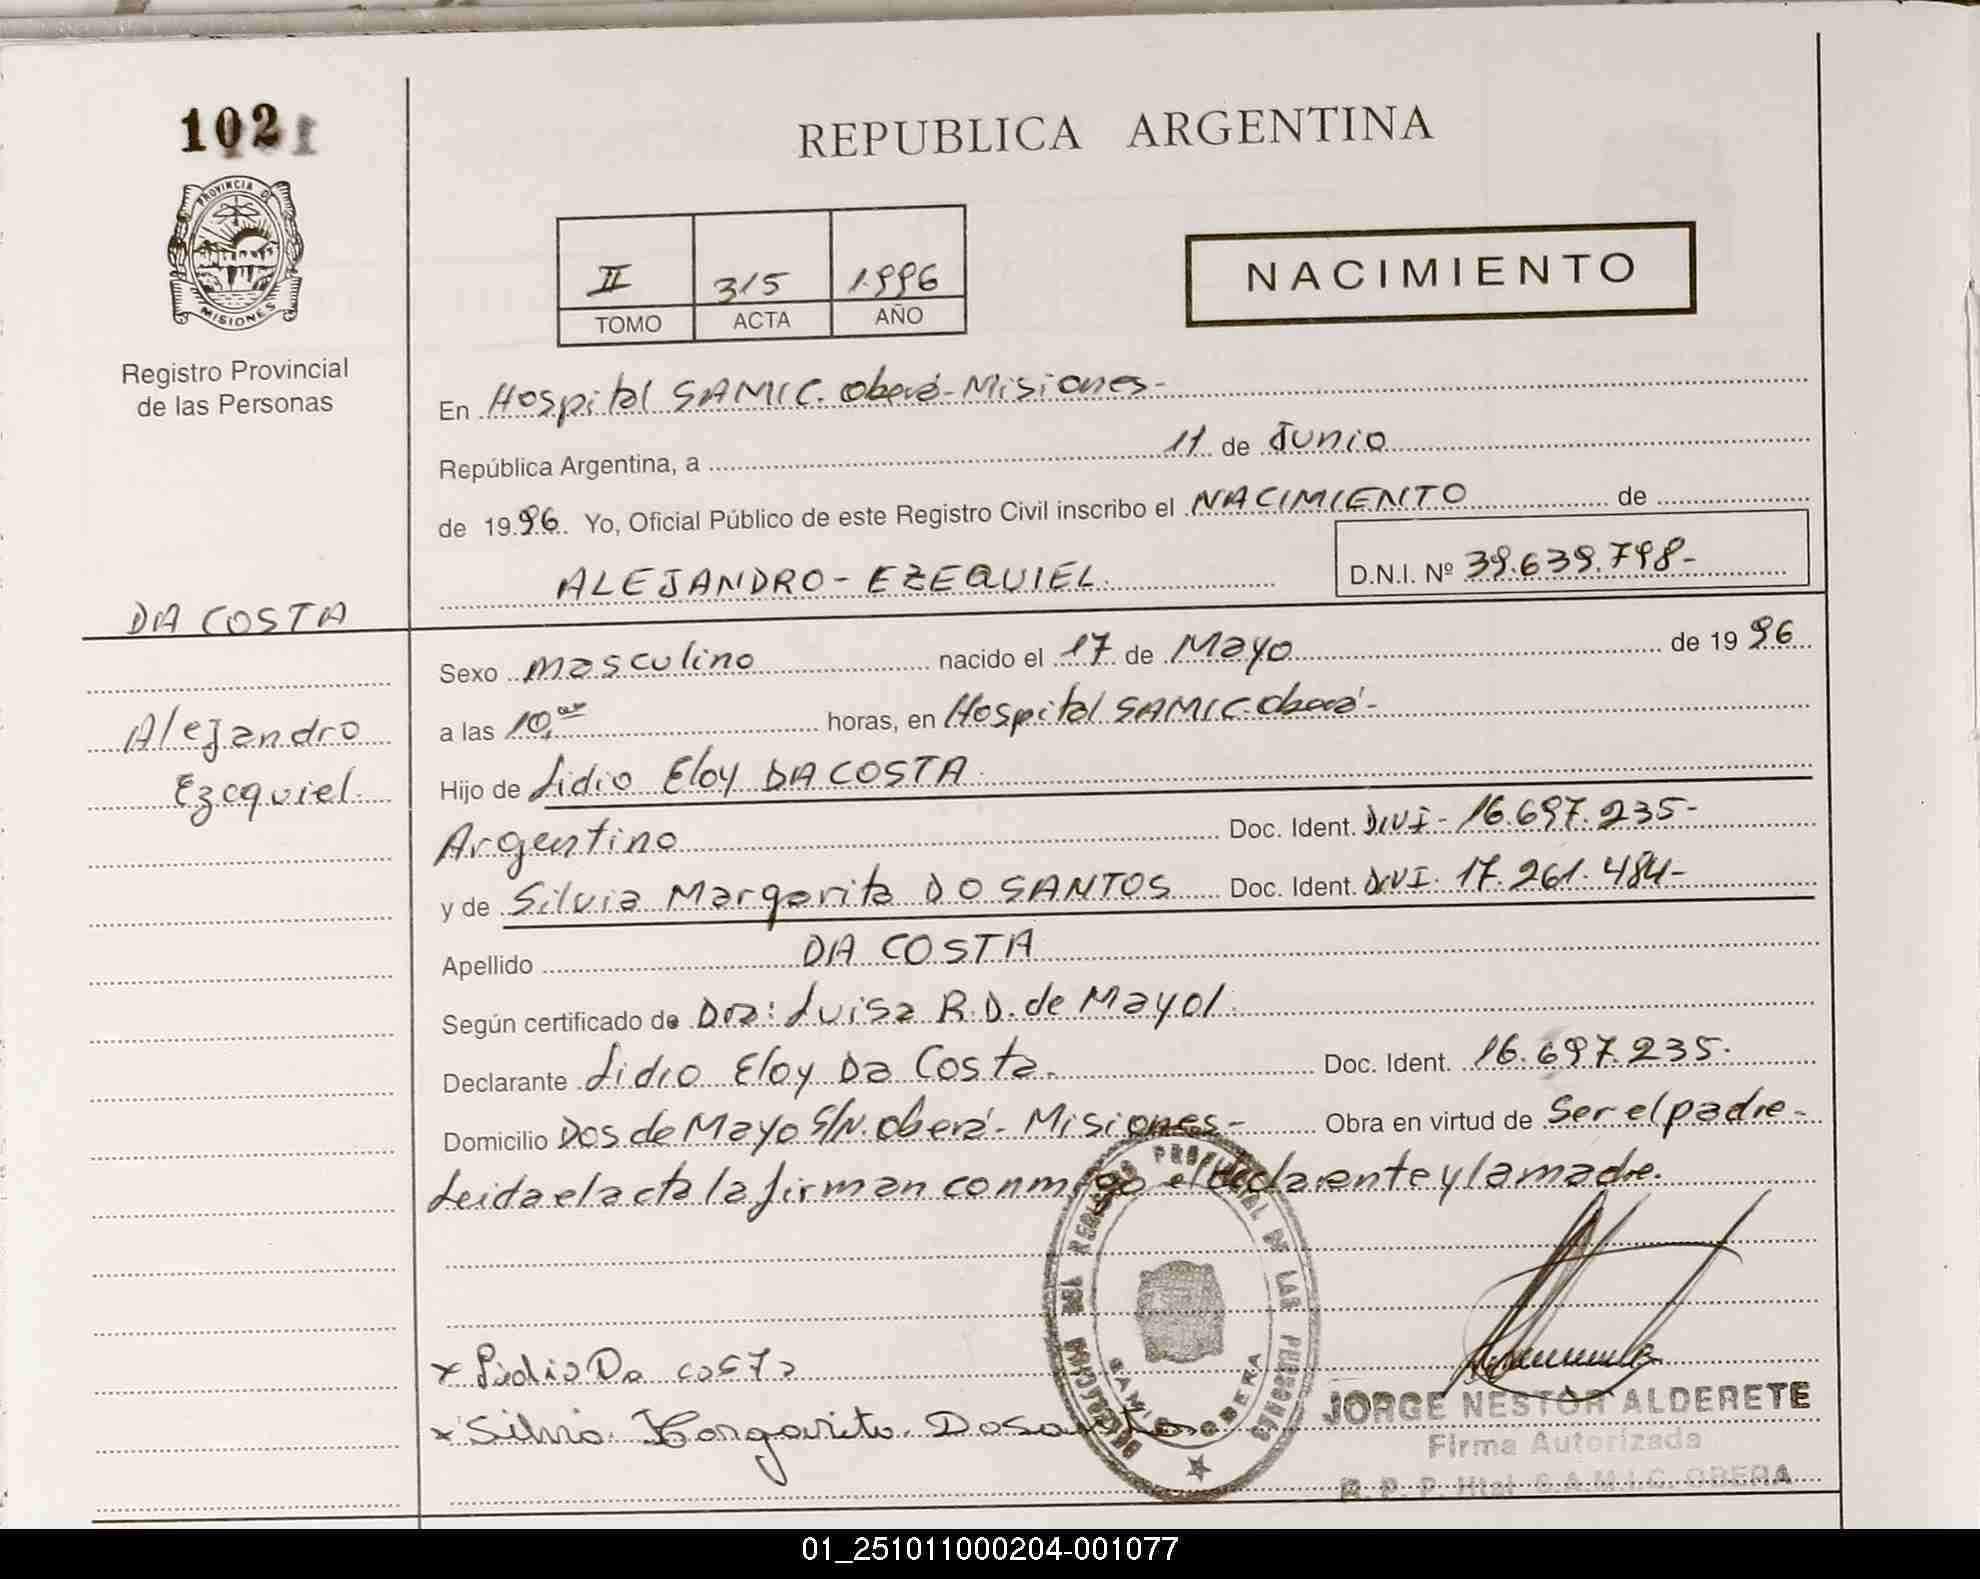 1021
PROVINCIA DE
MISIONES
Registro Provincial
de las Personas
DA COSTA
Alejandro
Ezequiel
REPUBLICA ARGENTINA
II 315 1996
TOMO ACTA AÑO
NACIMIENTO
En Hospital SAMIC. Oberá - Misiones -
República Argentina, a 11 de Junio
de 1996. Yo, Oficial Público de este Registro Civil inscribo el NACIMIENTO de
ALEJANDRO - EZEQUIEL. D.N.I. Nº 39.639.798-
Sexo masculino nacido el 17 de Mayo de 1996
a las 10, horas, en Hospital SAMIC. Oberá -
Hijo de Lidio Eloy DA COSTA
Argentino Doc. Ident. DNI - 16.697.235-
y de Silvia Margarita DO SANTOS Doc. Ident. DNI. 17.261.484-
Apellido DA COSTA
Según certificado de Dra: Luisa R.D. de Mayol.
Declarante Lidio Eloy Da Costa. Doc. Ident. 16.697.235.
Domicilio Dos de Mayo S/N. Oberá - Misiones - Obra en virtud de Ser el padre -
Leida el acta la firman conmigo el declarante y la madre.
x Lidio Da costa
x Silvia Margarita Dosantos
REGISTRO PROVINCIAL DE LAS PERSONAS
DELEGACION
SAMIC OBERA
JORGE NESTOR ALDERETE
Firma Autorizada
R. P. P. Htal S.A.M.I.C. OBERA
01_251011000204-001077